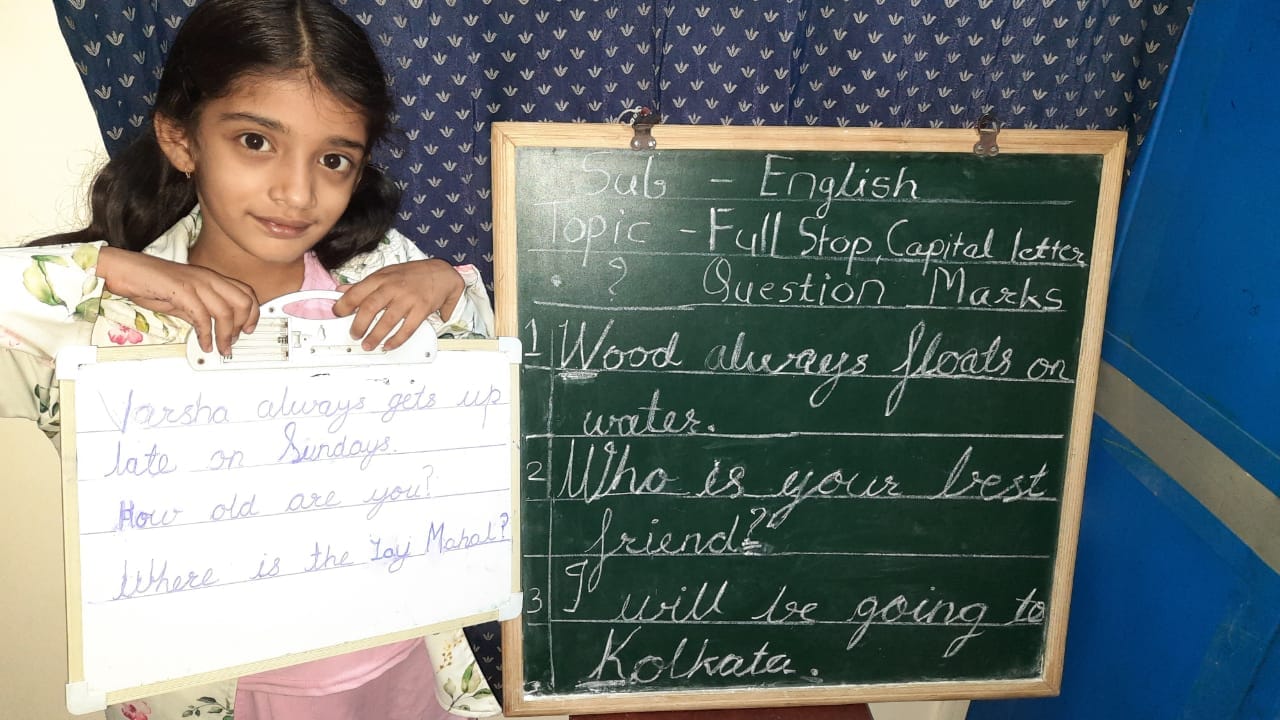 Varsha always gets up
late on Sundays.
How old are you?
Where is the Taj Mahal?
Sub - English
Topic - Full Stop, Capital letter
. ? Question Marks
1 Wood always floats on
water.
2 Who is your best
friend?
3 I will be going to
Kolkata.